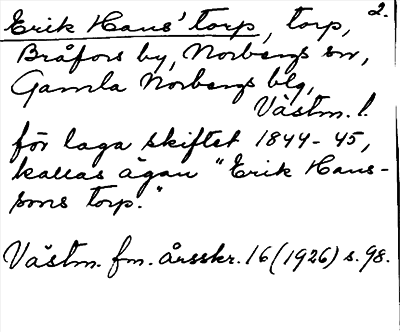 Erik Hans' torp, torp, 2.
Bråfors by, Norbergs sn,
Gamla Norbergs blg,
Västm. l.
för laga skiftet 1844-45,
kallas ägan "Erik Hans-
sons torp."
Västm. fm. årsskr. 16 (1926) s. 98.